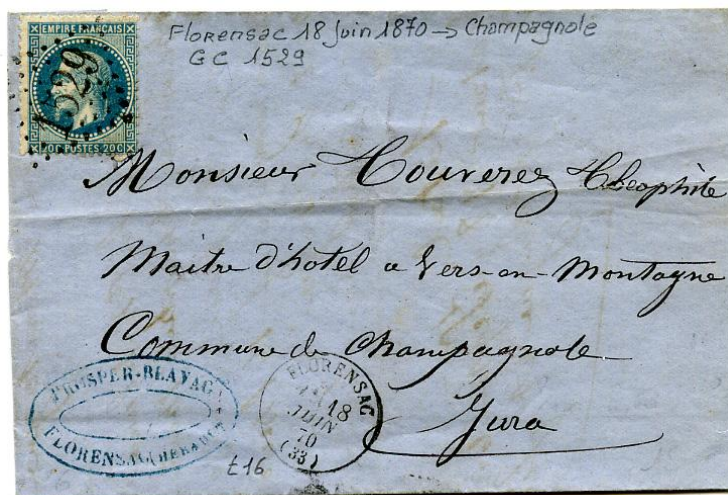 EMPIRE FRANÇAIS
1529
20C POSTES 20C
Florensac 18 Juin 1870 → Champagnole
GC 1529
Monsieur Touverez Théophile
Maitre d'hotel a Vers-en-Montagne
Commune de Champagnole
Jura
PROSPER-BLAYAC
FLORENSAC (HERAULT)
FLORENSAC
18
JUIN
70
(33)
t16